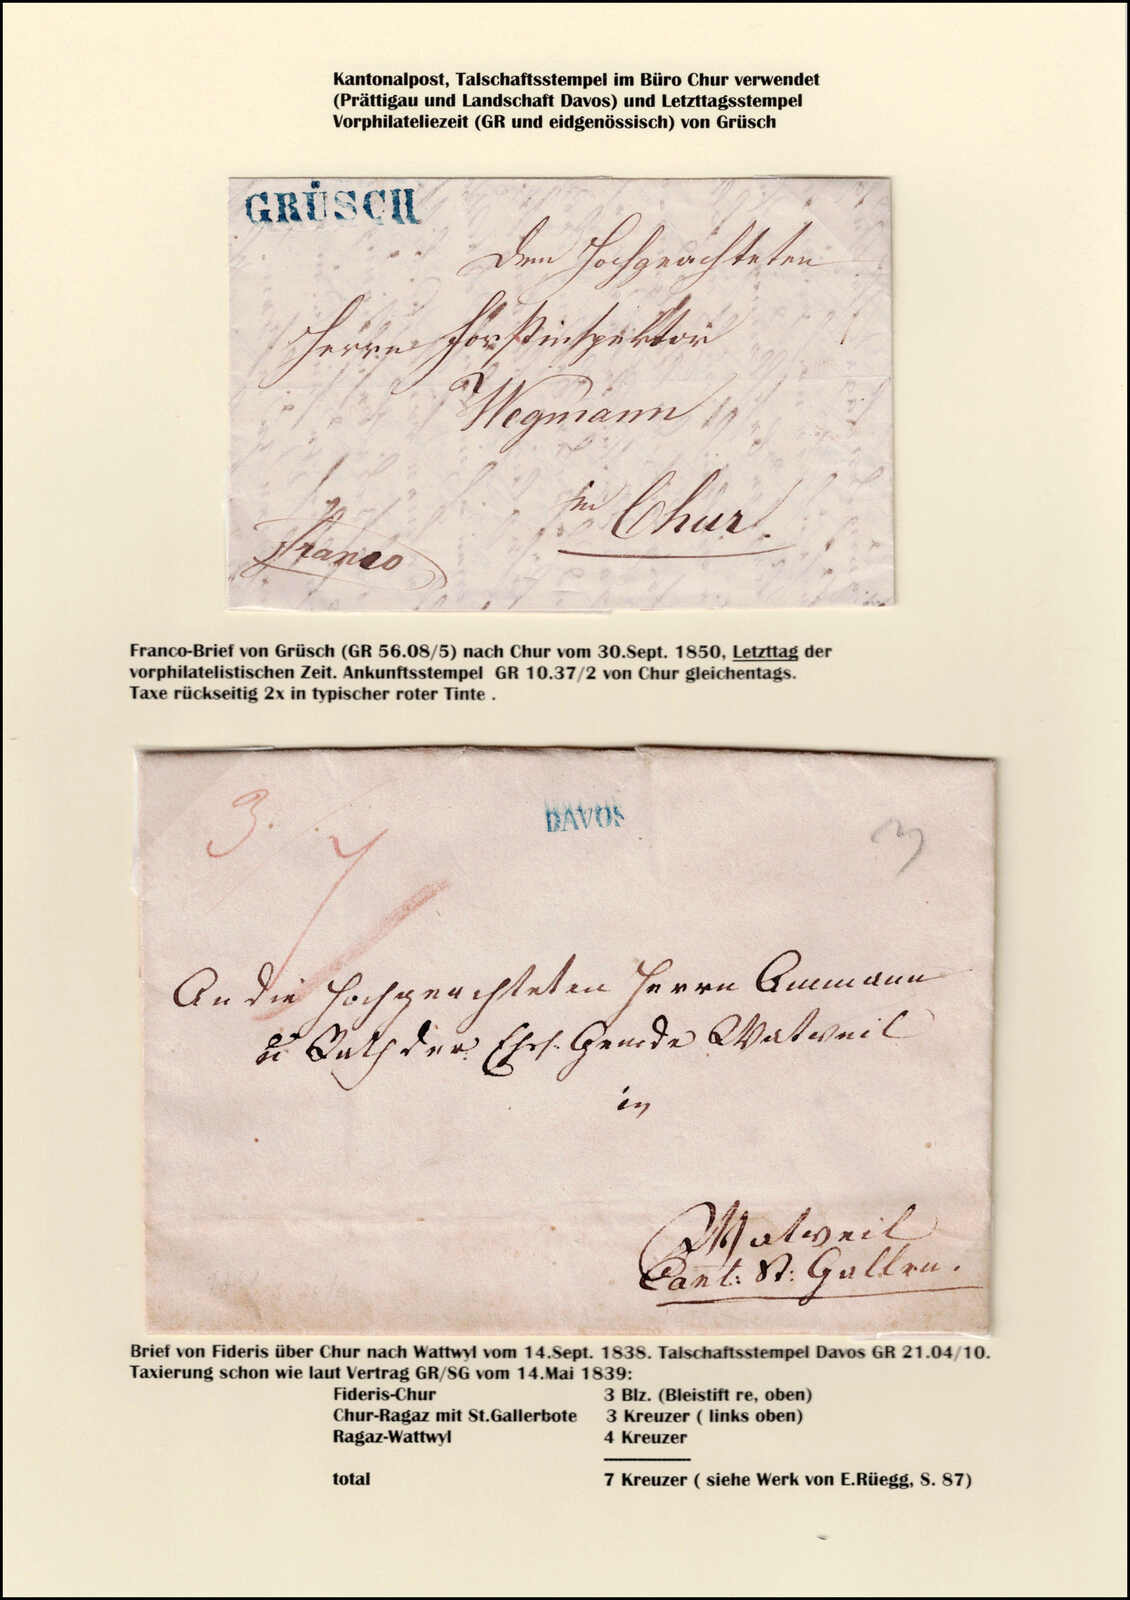 Kantonalpost, Talschaftsstempel im Büro Chur verwendet
(Prättigau und Landschaft Davos) und Letzttagsstempel
Vorphilateliezeit (GR und eidgenössisch) von Grüsch
GRÜSCH
Dem Hochgeachteten
Herrn Forstinspektor
Wegmann
in Chur.
Franco
Franco-Brief von Grüsch (GR 56.08/5) nach Chur vom 30.Sept. 1850, Letzttag der
vorphilatelistischen Zeit. Ankunftsstempel GR 10.37/2 von Chur gleichentags.
Taxe rückseitig 2x in typischer roter Tinte .
3. 7
DAVOS
3
An die Hochgeachteten Herrn Ammann
u Rath der Ehrs: Gemde Watweil
in
Watweil
Cant: St: Gallen.
Brief von Fideris über Chur nach Wattwyl vom 14.Sept. 1838. Talschaftsstempel Davos GR 21.04/10.
Taxierung schon wie laut Vertrag GR/SG vom 14.Mai 1839:
Fideris-Chur 3 Blz. (Bleistift re, oben)
Chur-Ragaz mit St.Gallerbote 3 Kreuzer ( links oben)
Ragaz-Wattwyl 4 Kreuzer
total 7 Kreuzer ( siehe Werk von E.Rüegg, S. 87)